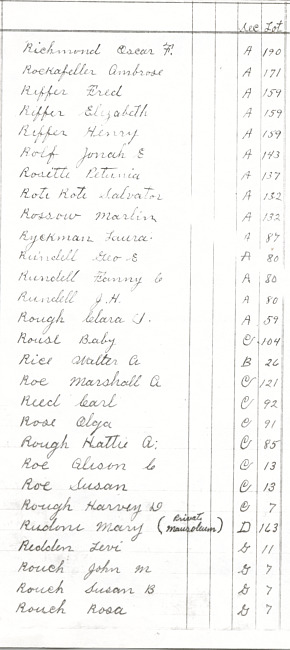 Sec Lot
Richmond Oscar F. A 190
Rockafeller Ambrose A 171
Riffer Fred A 159
Riffer Elizabeth A 159
Riffer Henry A 159
Rolf Jonah E A 143
Rosette Petunia A 137
Roti Roti Salvator A 132
Rossow Martin A 132
Ryckman Laura. A 87
Rundell Geo E A 80
Rundell Fanny C A 80
Rundell J. H. A 80
Rough Clara J. A 59
Rouse Baby C 104
Rice Walter A B 26
Roe Marshall A C 121
Reed Carl C 92
Rose Olga C 91
Rough Hattie A. C 85
Roe Alison C C 13
Roe Susan C 13
Rough Harvey D C 7
Rudoni Mary (Private Mausoleum) D 163
Redden Levi G 11
Rouch John M G 7
Rouch Susan B G 7
Rouch Rosa G 7